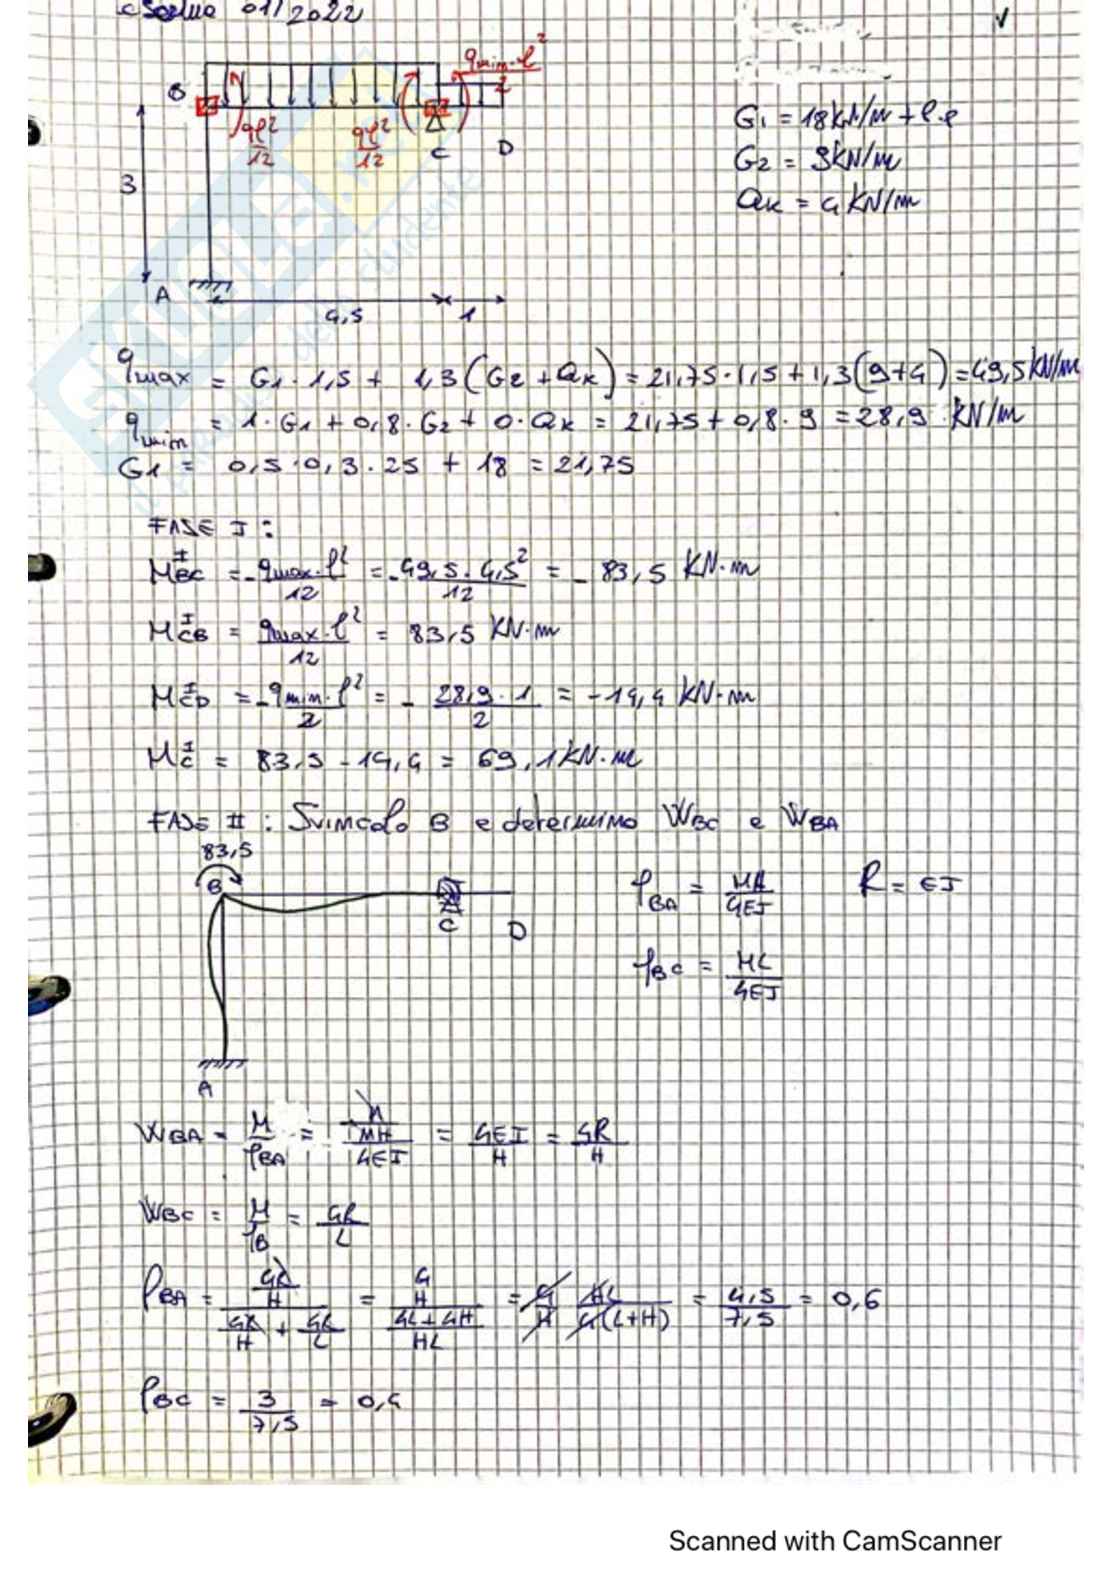 esame 01/2022
qmin·l²/2
B
ql²/12
ql²/12
C
D
3
A
4,5
1
G1 = 18kN/m + P.P
G2 = 9kN/m
Qk = 4kN/m
qmax = G1·1,5 + 1,3(G2+Qk) = 21,75·1,5+1,3(9+4) = 49,5kN/m
qmin = 1·G1 + 0,8·G2 + 0·Qk = 21,75 + 0,8·9 = 28,9 kN/m
G1 = 0,5·0,3·25 + 18 = 21,75
FASE I:
M^I BC = -qmax·l²/12 = -49,5·4,5²/12 = -83,5 KN·m
M^I CB = qmax·l²/12 = 83,5 KN·m
M^I CD = -qmin·l²/2 = -28,9·1/2 = -14,4 KN·m
M^I C = 83,5 - 14,4 = 69,1KN·m
FASE II: Svincolo B e determino WBC e WBA
83,5
B
C
D
A
φBA = MH/4EI
R = EI
φBC = ML/4EI
WBA = M/φBA = M/(MH/4EI) = 4EI/H = 4R/H
WBC = M/φB = 4R/L
ρBA = (4R/H)/(4R/H + 4R/L) = (4/H)/((4L+4H)/HL) = 4/H HL/4(L+H) = 4,5/7,5 = 0,6
ρBC = 3/7,5 = 0,4
Scanned with CamScanner